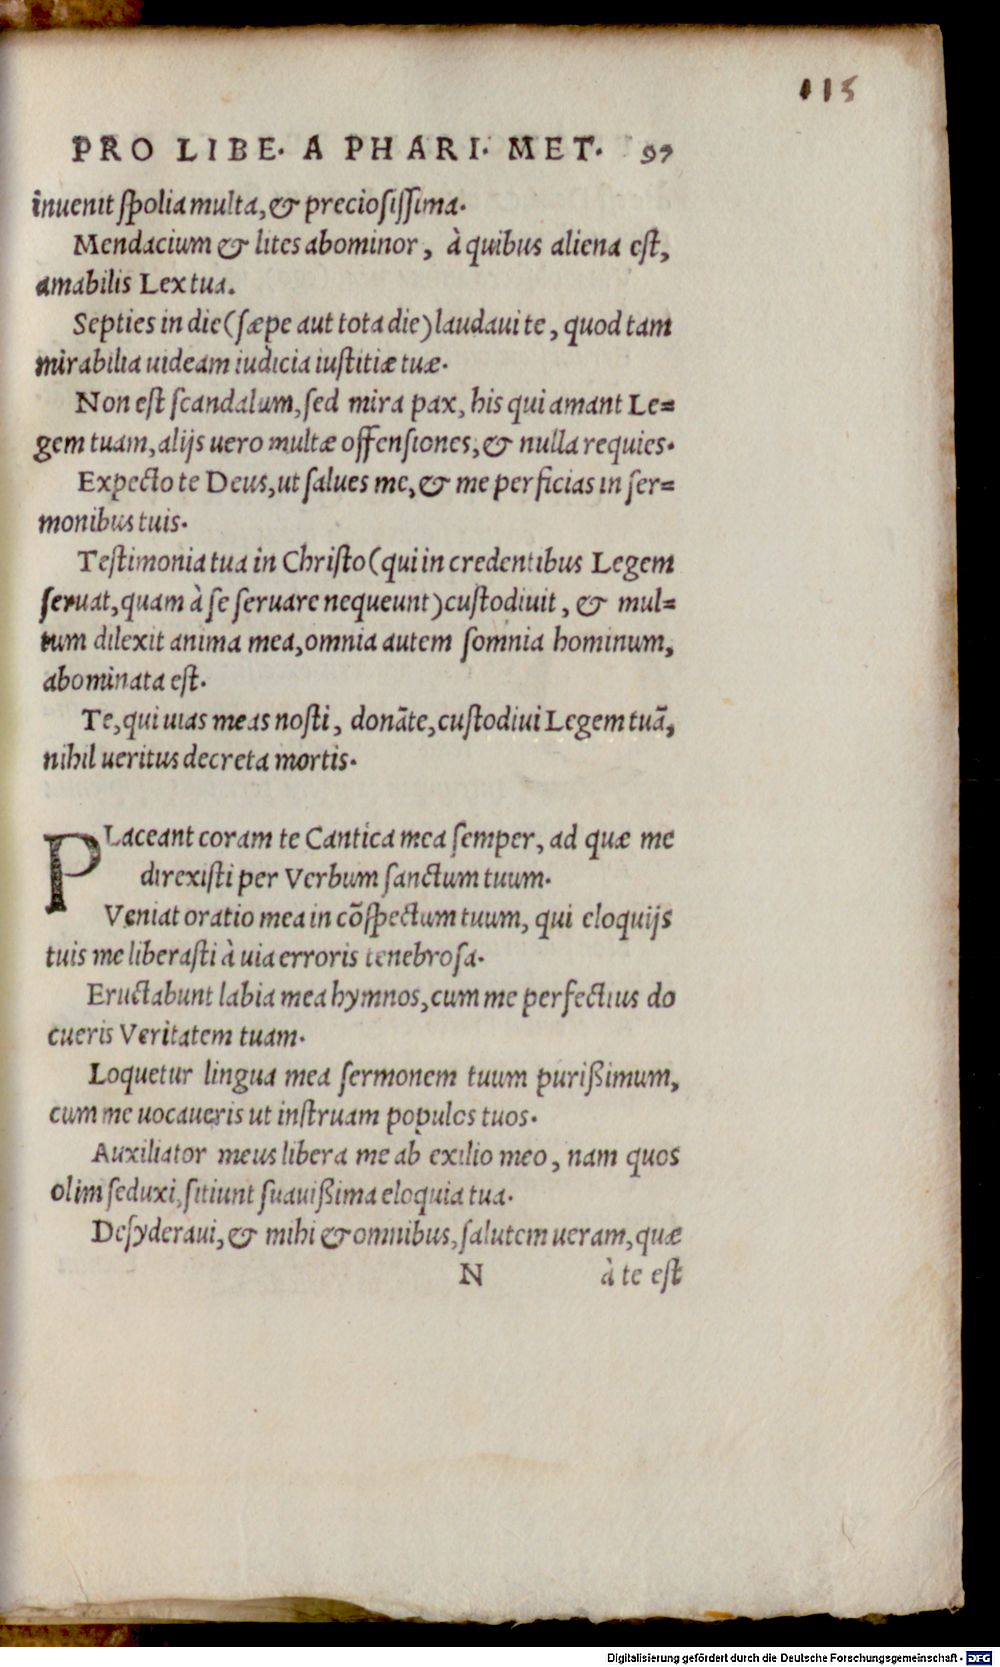 115
PRO LIBE. A PHARI. MET. 97
inuenit spolia multa, & preciosissima.
Mendacium & lites abominor, à quibus aliena est,
amabilis Lex tua.
Septies in die (sæpe aut tota die) laudaui te, quod tam
mirabilia uideam iudicia iustitiæ tuæ.
Non est scandalum, sed mira pax, his qui amant Le=
gem tuam, alijs uero multæ offensiones, & nulla requies.
Expecto te Deus, ut salues me, & me perficias in ser=
monibus tuis.
Testimonia tua in Christo (qui in credentibus Legem
seruat, quam à se seruare nequeunt) custodiuit, & mul=
tum dilexit anima mea, omnia autem somnia hominum,
abominata est.
Te, qui uias meas nosti, donāte, custodiui Legem tuā,
nihil ueritus decreta mortis.
PLaceant coram te Cantica mea semper, ad quæ me
direxisti per Verbum sanctum tuum.
Veniat oratio mea in cōspectum tuum, qui eloquijs
tuis me liberasti à uia erroris tenebrosa.
Eructabunt labia mea hymnos, cum me perfectius do
cueris Veritatem tuam.
Loquetur lingua mea sermonem tuum purißimum,
cum me uocaueris ut instruam populos tuos.
Auxiliator meus libera me ab exilio meo, nam quos
olim seduxi, sitiunt suauißima eloquia tua.
Desyderaui, & mihi & omnibus, salutem ueram, quæ
N à te est
Digitalisierung gefördert durch die Deutsche Forschungsgemeinschaft - DFG